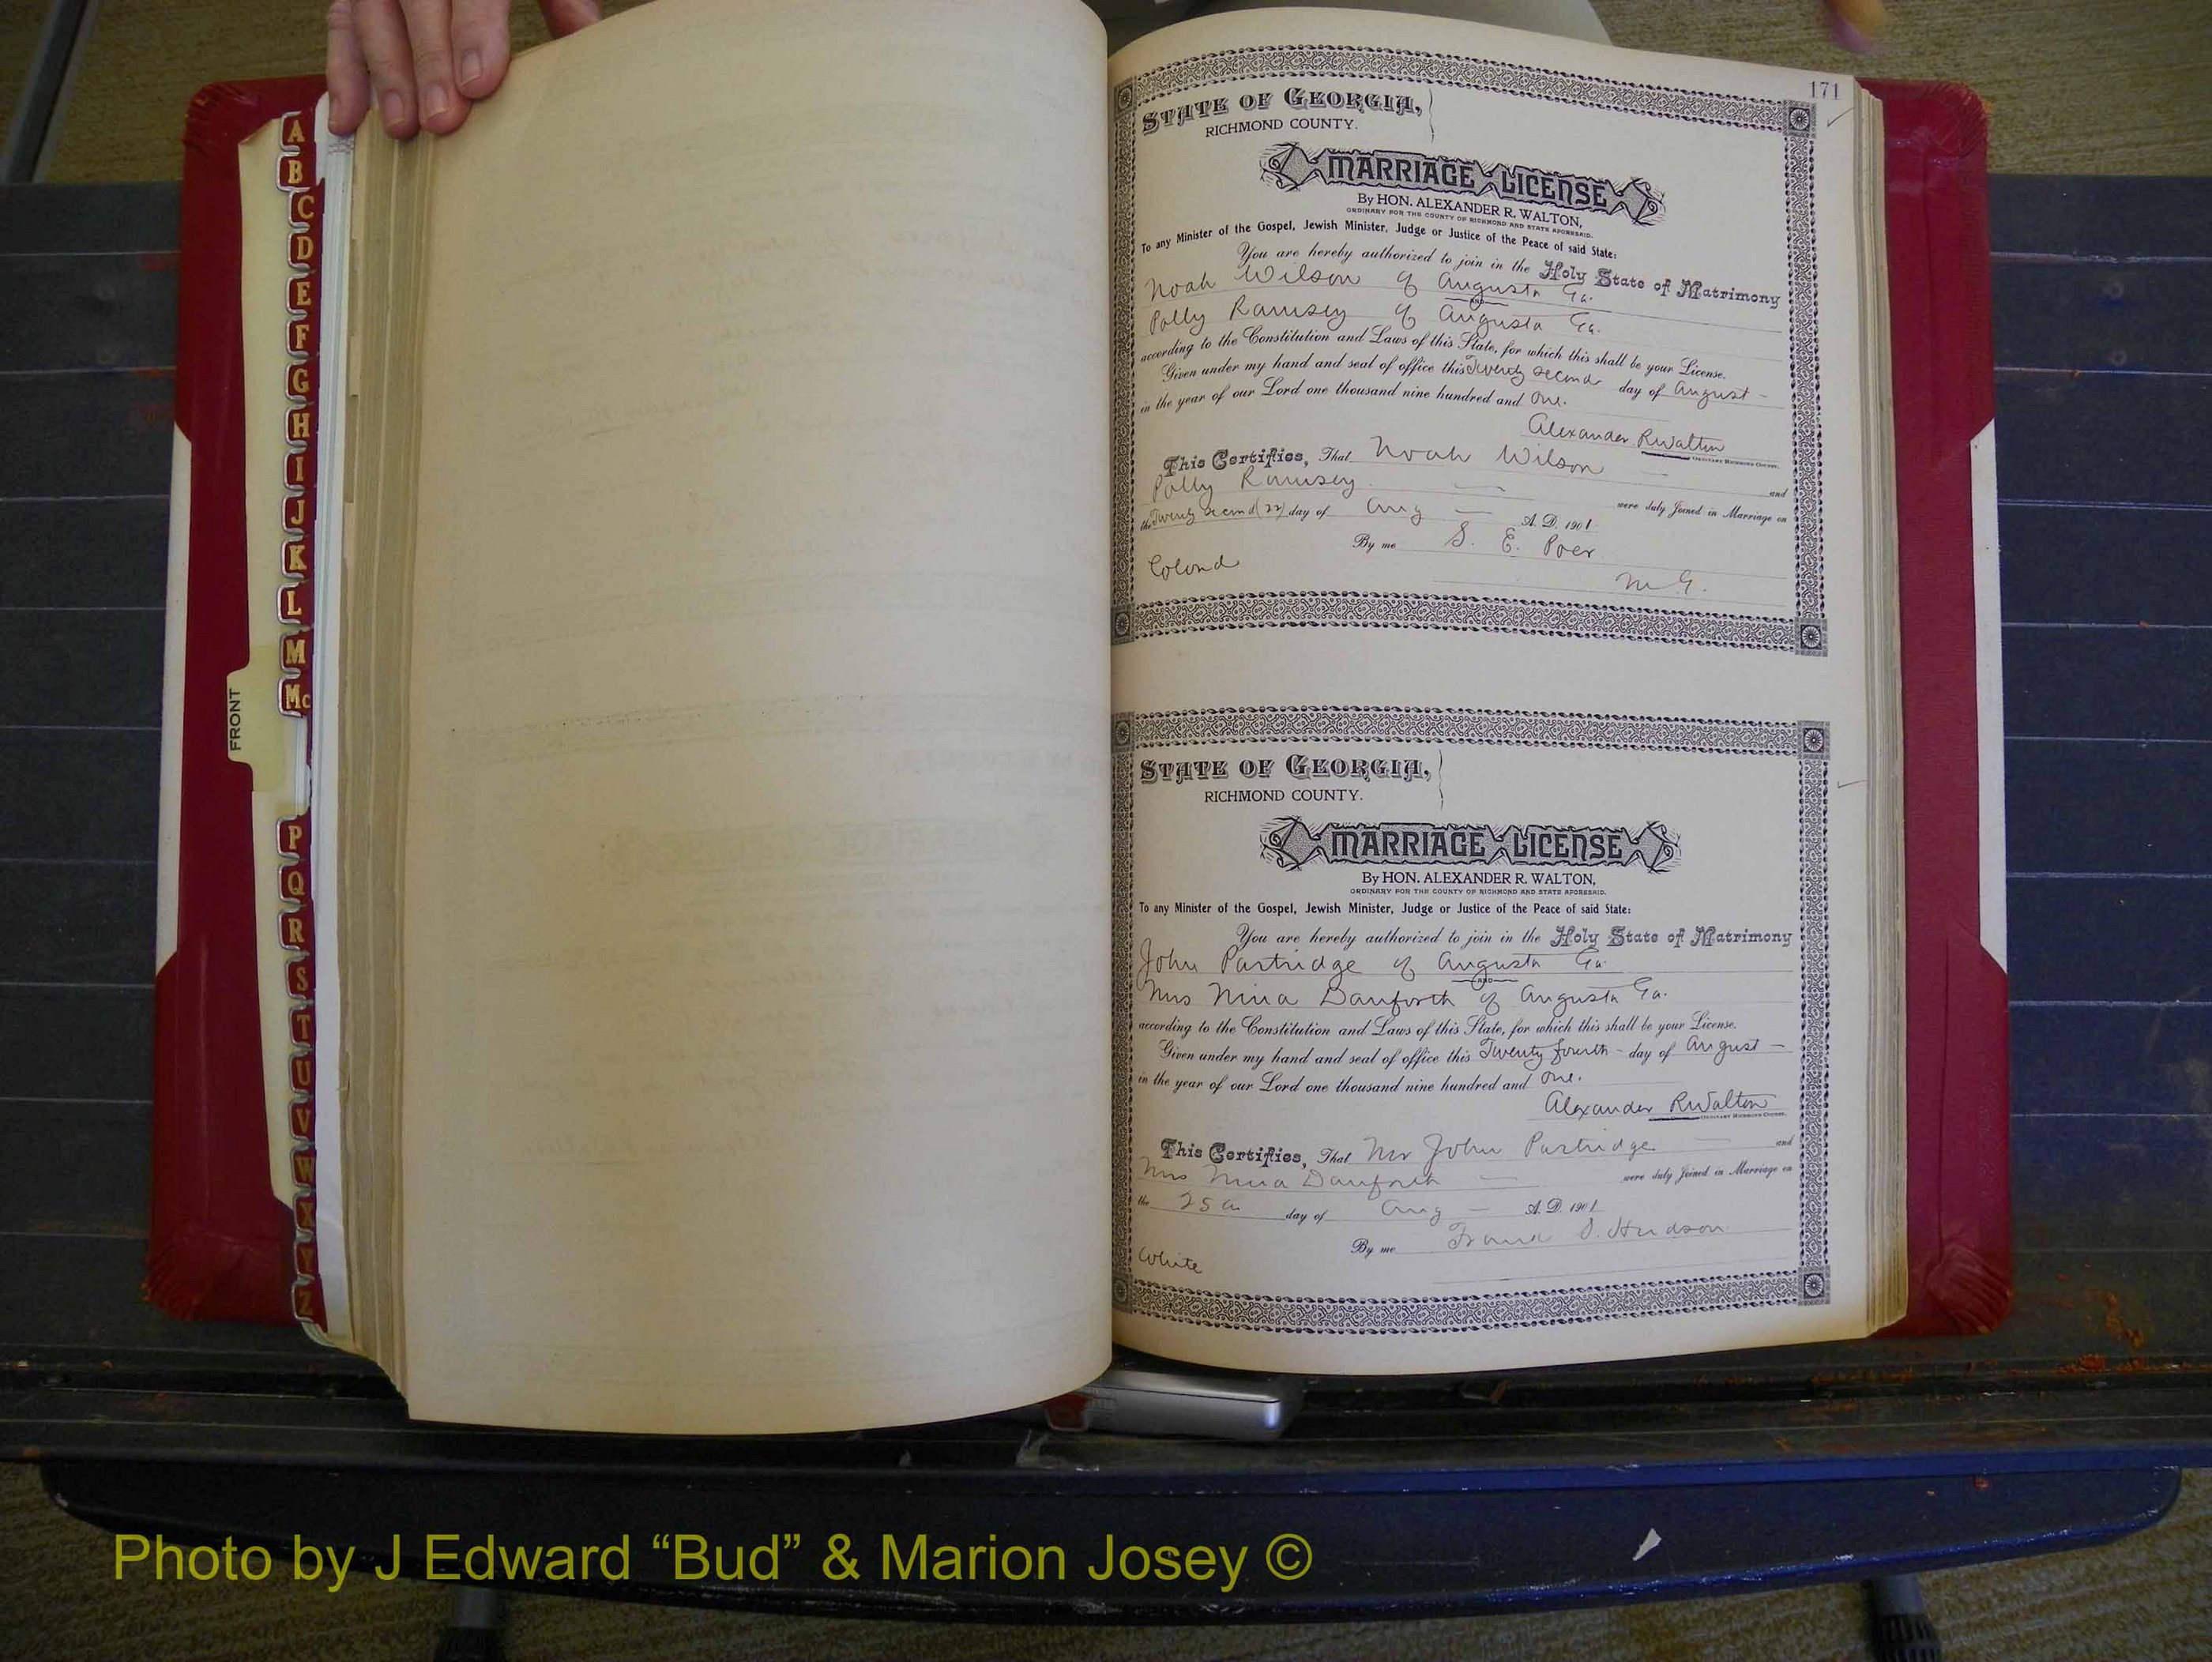 A
B
C
D
E
F
G
H
I
J
K
L
M
Mc
FRONT
P
Q
R
S
T
U
V
W
X
Y
Z
171
STATE OF GEORGIA,
RICHMOND COUNTY.
MARRIAGE LICENSE
By HON. ALEXANDER R. WALTON,
ORDINARY FOR THE COUNTY OF RICHMOND AND STATE AFORESAID.
To any Minister of the Gospel, Jewish Minister, Judge or Justice of the Peace of said State:
You are hereby authorized to join in the Holy State of Matrimony
Noah Wilson of Augusta Ga.
AND
Polly Ramsey of Augusta Ga.
according to the Constitution and Laws of this State, for which this shall be your License.
Given under my hand and seal of office this Twenty second day of August -
in the year of our Lord one thousand nine hundred and One.
Alexander R Walton
ORDINARY RICHMOND COUNTY.
This Certifies, That Noah Wilson and
Polly Ramsey were duly Joined in Marriage on
the Twenty second (22) day of Aug A. D. 1901.
By me S. E. Poer
Colord
M. G.
STATE OF GEORGIA,
RICHMOND COUNTY.
MARRIAGE LICENSE
By HON. ALEXANDER R. WALTON,
ORDINARY FOR THE COUNTY OF RICHMOND AND STATE AFORESAID.
To any Minister of the Gospel, Jewish Minister, Judge or Justice of the Peace of said State:
You are hereby authorized to join in the Holy State of Matrimony
John Partridge of Augusta Ga.
AND
Mrs Nina Danforth of Augusta Ga.
according to the Constitution and Laws of this State, for which this shall be your License.
Given under my hand and seal of office this Twenty fourth - day of August -
in the year of our Lord one thousand nine hundred and One.
Alexander R Walton
ORDINARY RICHMOND COUNTY.
This Certifies, That Mr John Partridge and
Mrs Nina Danforth were duly Joined in Marriage on
the 25th day of Aug A. D. 1901.
By me S. Hudson
White
Photo by J Edward “Bud” & Marion Josey ©